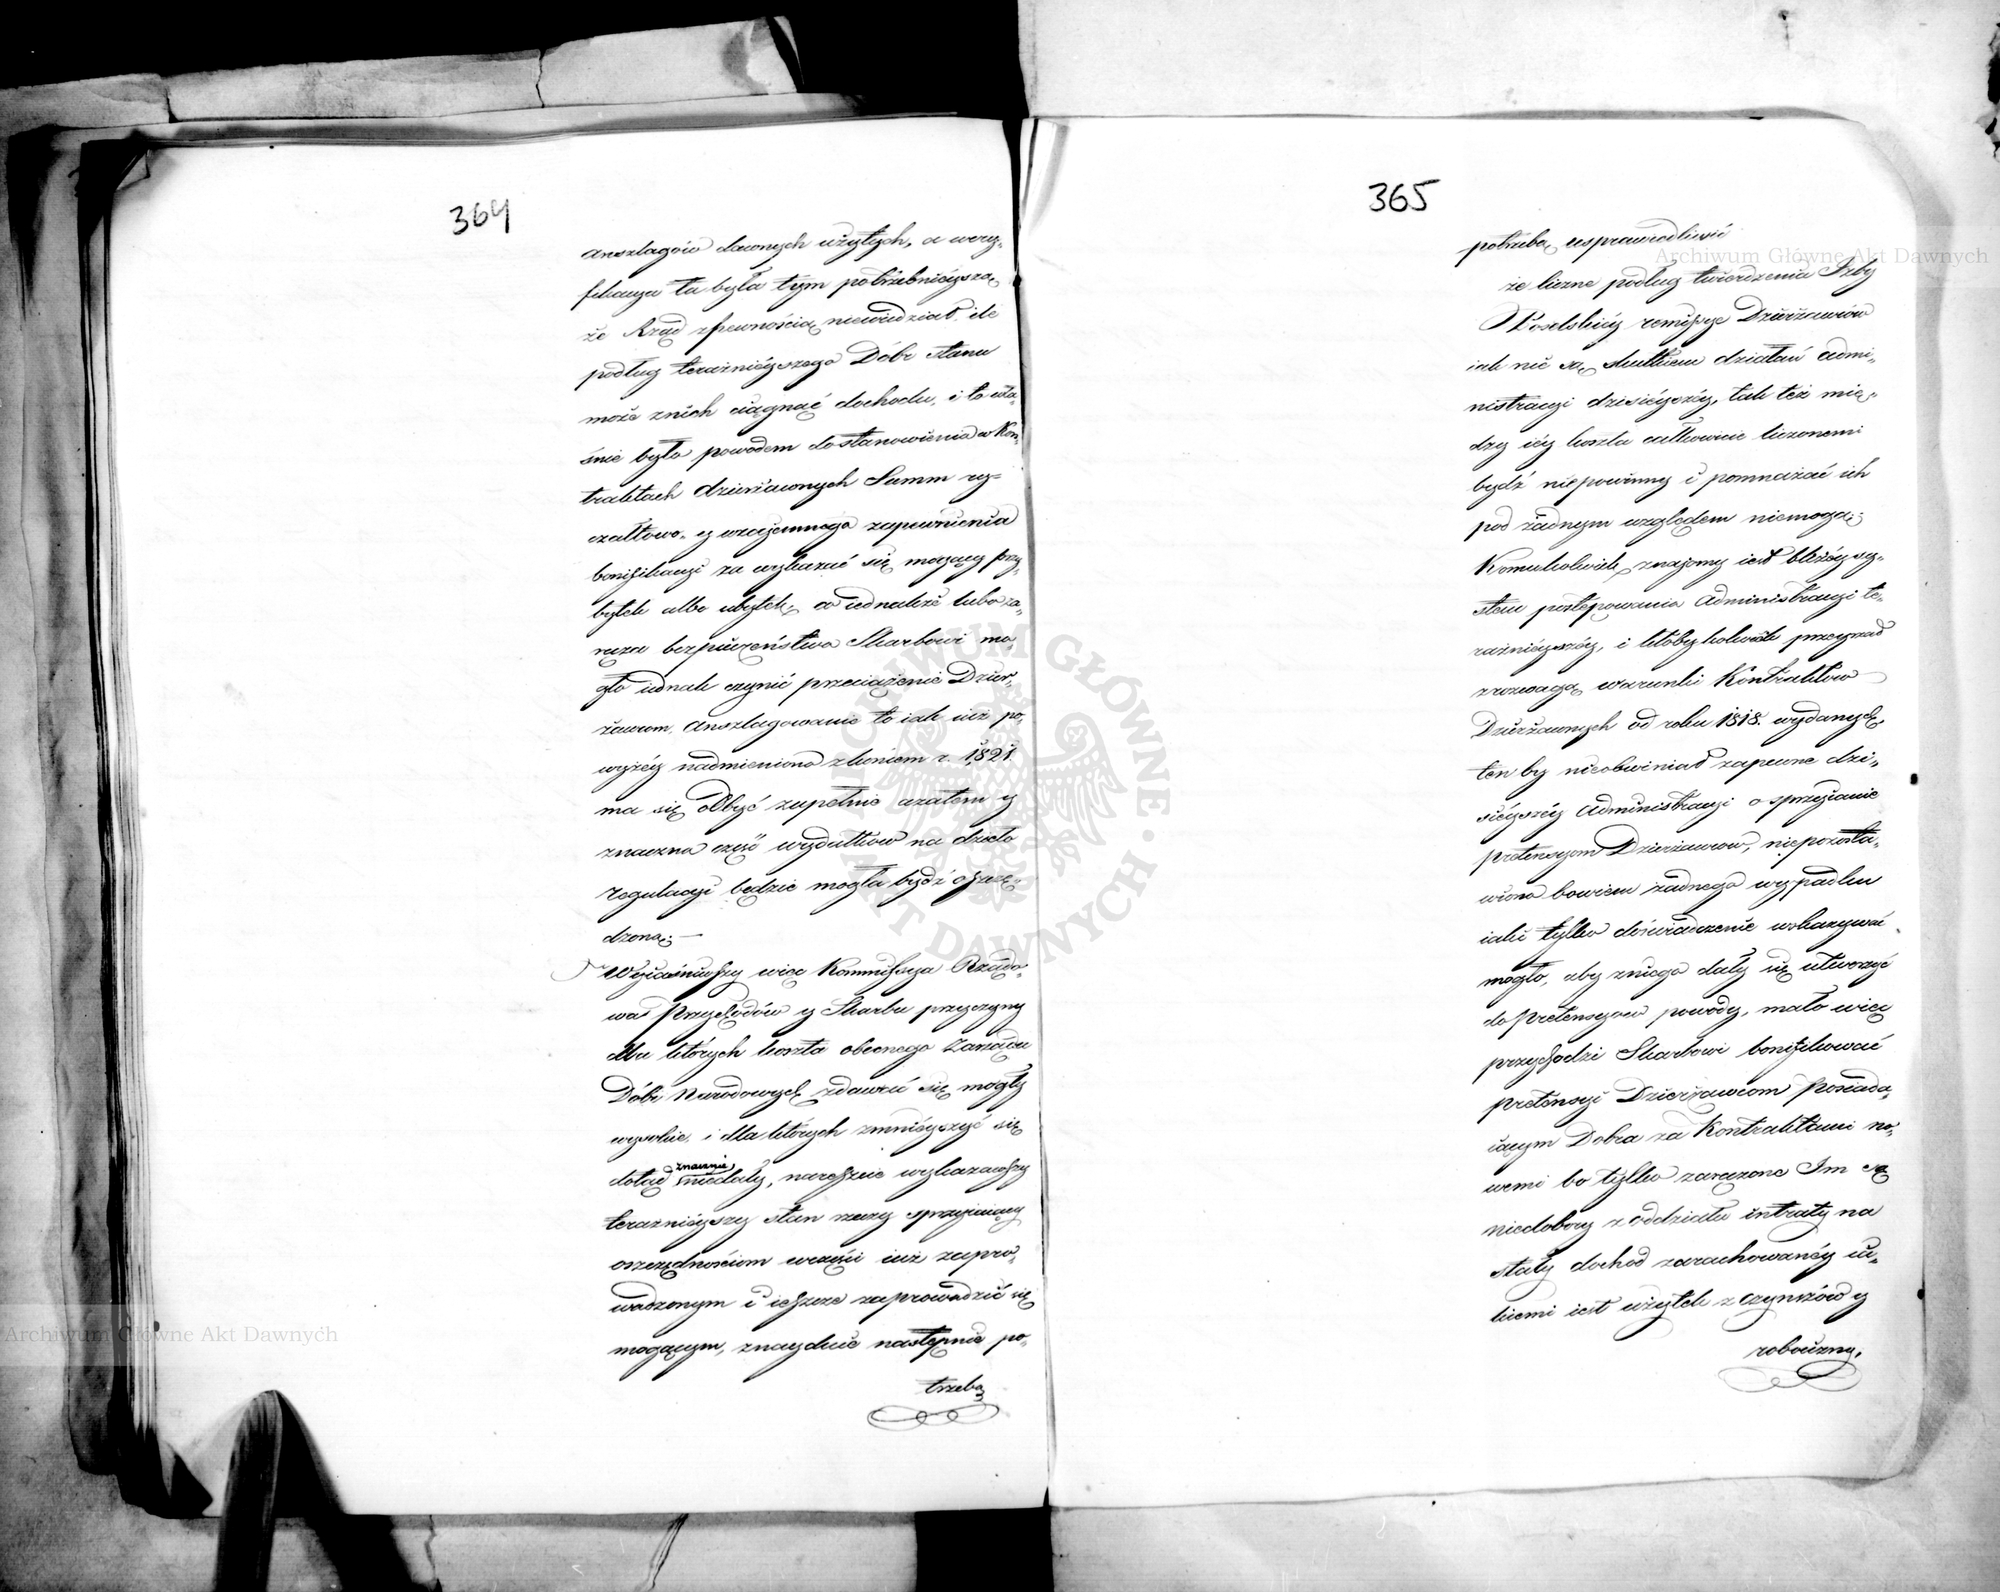 364
anszlagów dawnych użytych, a wery„
fikacya ta była tym potrzebnieysza,
że Rząd z pewnością niewiedział, ile
podług teraznieyszego Dóbr stanu
może znich ciągnąć dochodu, i to wła„
śnie było powodem do stanowienia w Kon„
traktach dzierżawnych Summ ry„
czałtowo, y wzajemnego zapewnienia
bonifikacyi za wykazać się mogący przy„
bytek albo ubytek; a iednakże lubo za„
ręcza bezpieczeństwo Skarbowi mo„
gło iednak czynić przeciążenie Dzier„
żawcom, anszlagowanie to iak iuż po„
wyżéy nadmieniono z końcem r. 1821.
ma się odbyć zupełnie azatem y
znaczna część wydatków na dzieło
regulacyi będzie mogła bydź oszczę„
dzoną. —
Wyiaśniwszy więc Kommissya Rządo„
wa Przychodów y Skarbu przyczyny
dla których koszta obecnego Zarządu
Dóbr Narodowych zdawać się mogły
wysokie, i dla których zmnieyszyć się
dotąd znacznie niedały, nareszcie wykazawszy
teraznieyszy stan rzeczy sprzyiaiący
oszczędnościom wczęści iuż zapro„
wadzonym i ieszcze zaprowadzić się
mogącym, znayduie następnie po„
trzebą
365
potrzebą usprawiedliwić
że liczne podług twierdzenia Izby
Poselskiéy remissye Dzierżawców
iak nie są skutkiem działań admi„
nistracyi dzisieyszéy, tak też mię„
dzy iéy koszta całkowicie liczonemi
bydź niepowinny i pomnażać ich
pod żadnym względem niemogą;
Komukolwiek znajomy iest bliżéy sy„
stem postępowania Administracyi te„
raznieyszéy, i ktobykolwiek przeyrzał
z rozwagą warunki Kontraktów
Dzierżawnych od roku 1818. wydanych,
ten by nieobwiniał zapewne dzi„
sieyszéy Administracyi o sprzyianie
pretensyom Dzierżawców, niepozosta„
wiono bowiem żadnego wypadku
iaki tylko doświadczenie wskazywać
mogło, aby zniego dały się utworzyć
do pretensyow powody, mało więc
przychodzi Skarbowi bonifikować
pretensyi Dzierżawcom posiada„
iącym Dobra za Kontraktami no„
wemi bo tylko zaręczone Im są
niedobory z oddziału intraty na
stały dochód zarachowanéy ia„
kiemi iest użytek z czynszów y
robocizny,
Archiwum Główne Akt Dawnych
Archiwum Główne Akt Dawnych
ARCHIWUM GŁÓWNE AKT DAWNYCH